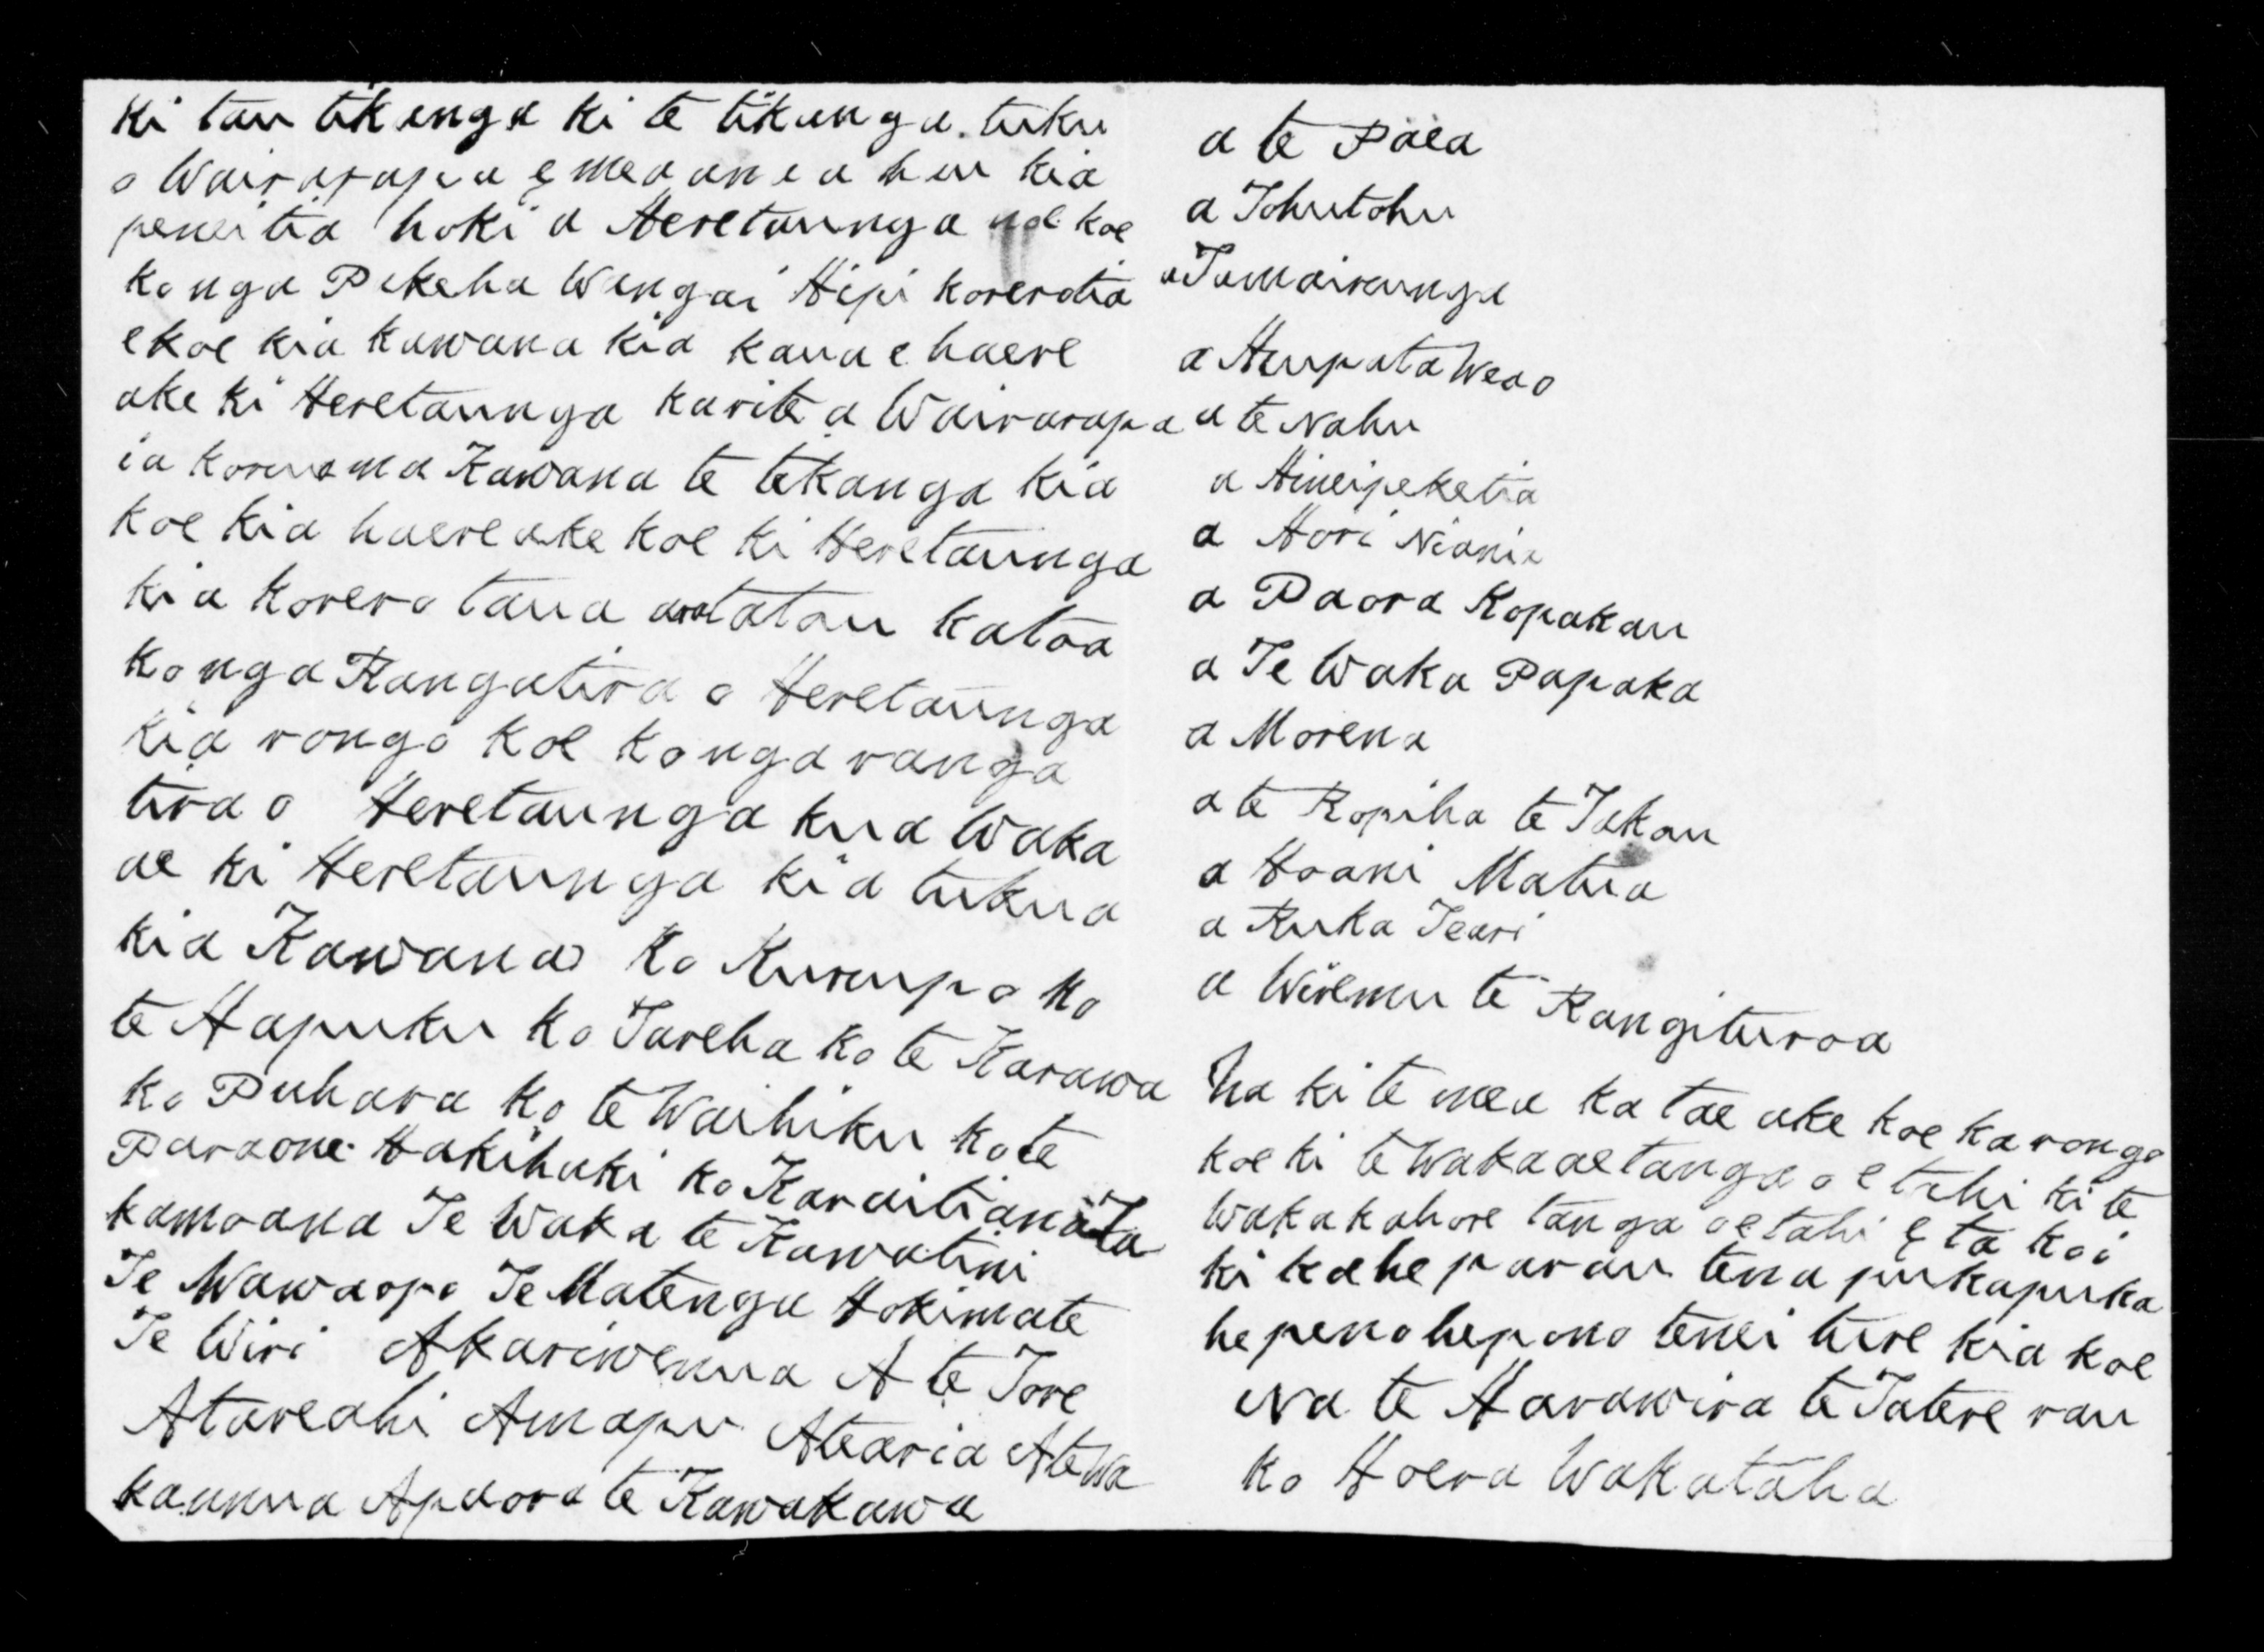 Ki tau tikanga ki te tikanga. tuku
o Wairarapa e mea ana ahau kia
peneitia hoki a Heretaunga koe
ko nga Pakeha Wangai Hipi korerotia
ekoe kia kawana kia kaua e haere
ake ki Heretaunga karite a Wairarapa
ia koruama Kawana te tekanga kia
koe kia haere ake koe ki Heretaunga
kia korero taua aratatou katoa
ko nga Rangatira o Heretaunga
kia rongo koe ko nga ranga
tira o Heretaunga kua Waka
ae ki Heretaunga kia tukua
kia Kawana ko Kurupo ko
te Hapuku ko Tareha ko te Karawa
ko Puhara ko te Waihiku ko te
Paraone Hakihaki ko Karaitiana Ta
kamoana Te Waka te Kawatini
Te Wawaopo Te Matenga Hokimate
Te Wiri Akariwenua A te Tore
Atareahi Amapu Atearia AteWa
kaunua Apaora te Kawakawa
a te Paea
a Tohutohu
a Tamairunga
a Aupata Weao
a te Nahu
a Hineipeketia
a Hori Niania
a Paora Kopakau
a Te Waka Papaka
a Morena
a te Ropiha te Takou
a Hoani Matua
a Ruka Teari
a Wiremu te Rangituroa
Na ki te mea ka tae ake koe ka rongo
koe ki te Wakaaetanga o etahi ki te
Wakakahore tanga oetahi e ta koi
ki koe he parau tena pukapuka
he pono hepono tenei ture kia koe
Na te Harawira te Tatere rau
ko Hoera Wakataha